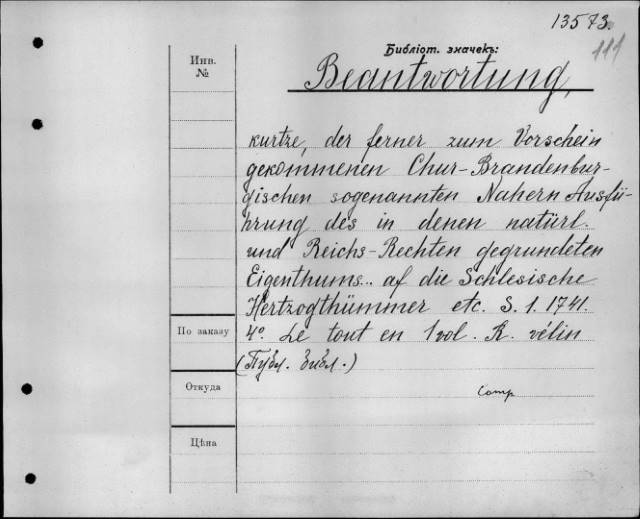 13573.
111
Инв.
№
Библіот. значекъ:
Beantwortung,
kurtze, der ferner zum Vorschein
gekommenen Chur-Brandenbur-
gischen sogenannten Nahern Ausfü-
hrung des in denen natürl.
und Reichs-Rechten gegrundeten
Eigenthums.. af die Schlesische
Hertzogthümmer etc. S. l. 1741.
По заказу
4º. Le tout en 1 vol. R. vélin
(Публ. библ.)
Откуда
Comp
Цѣна